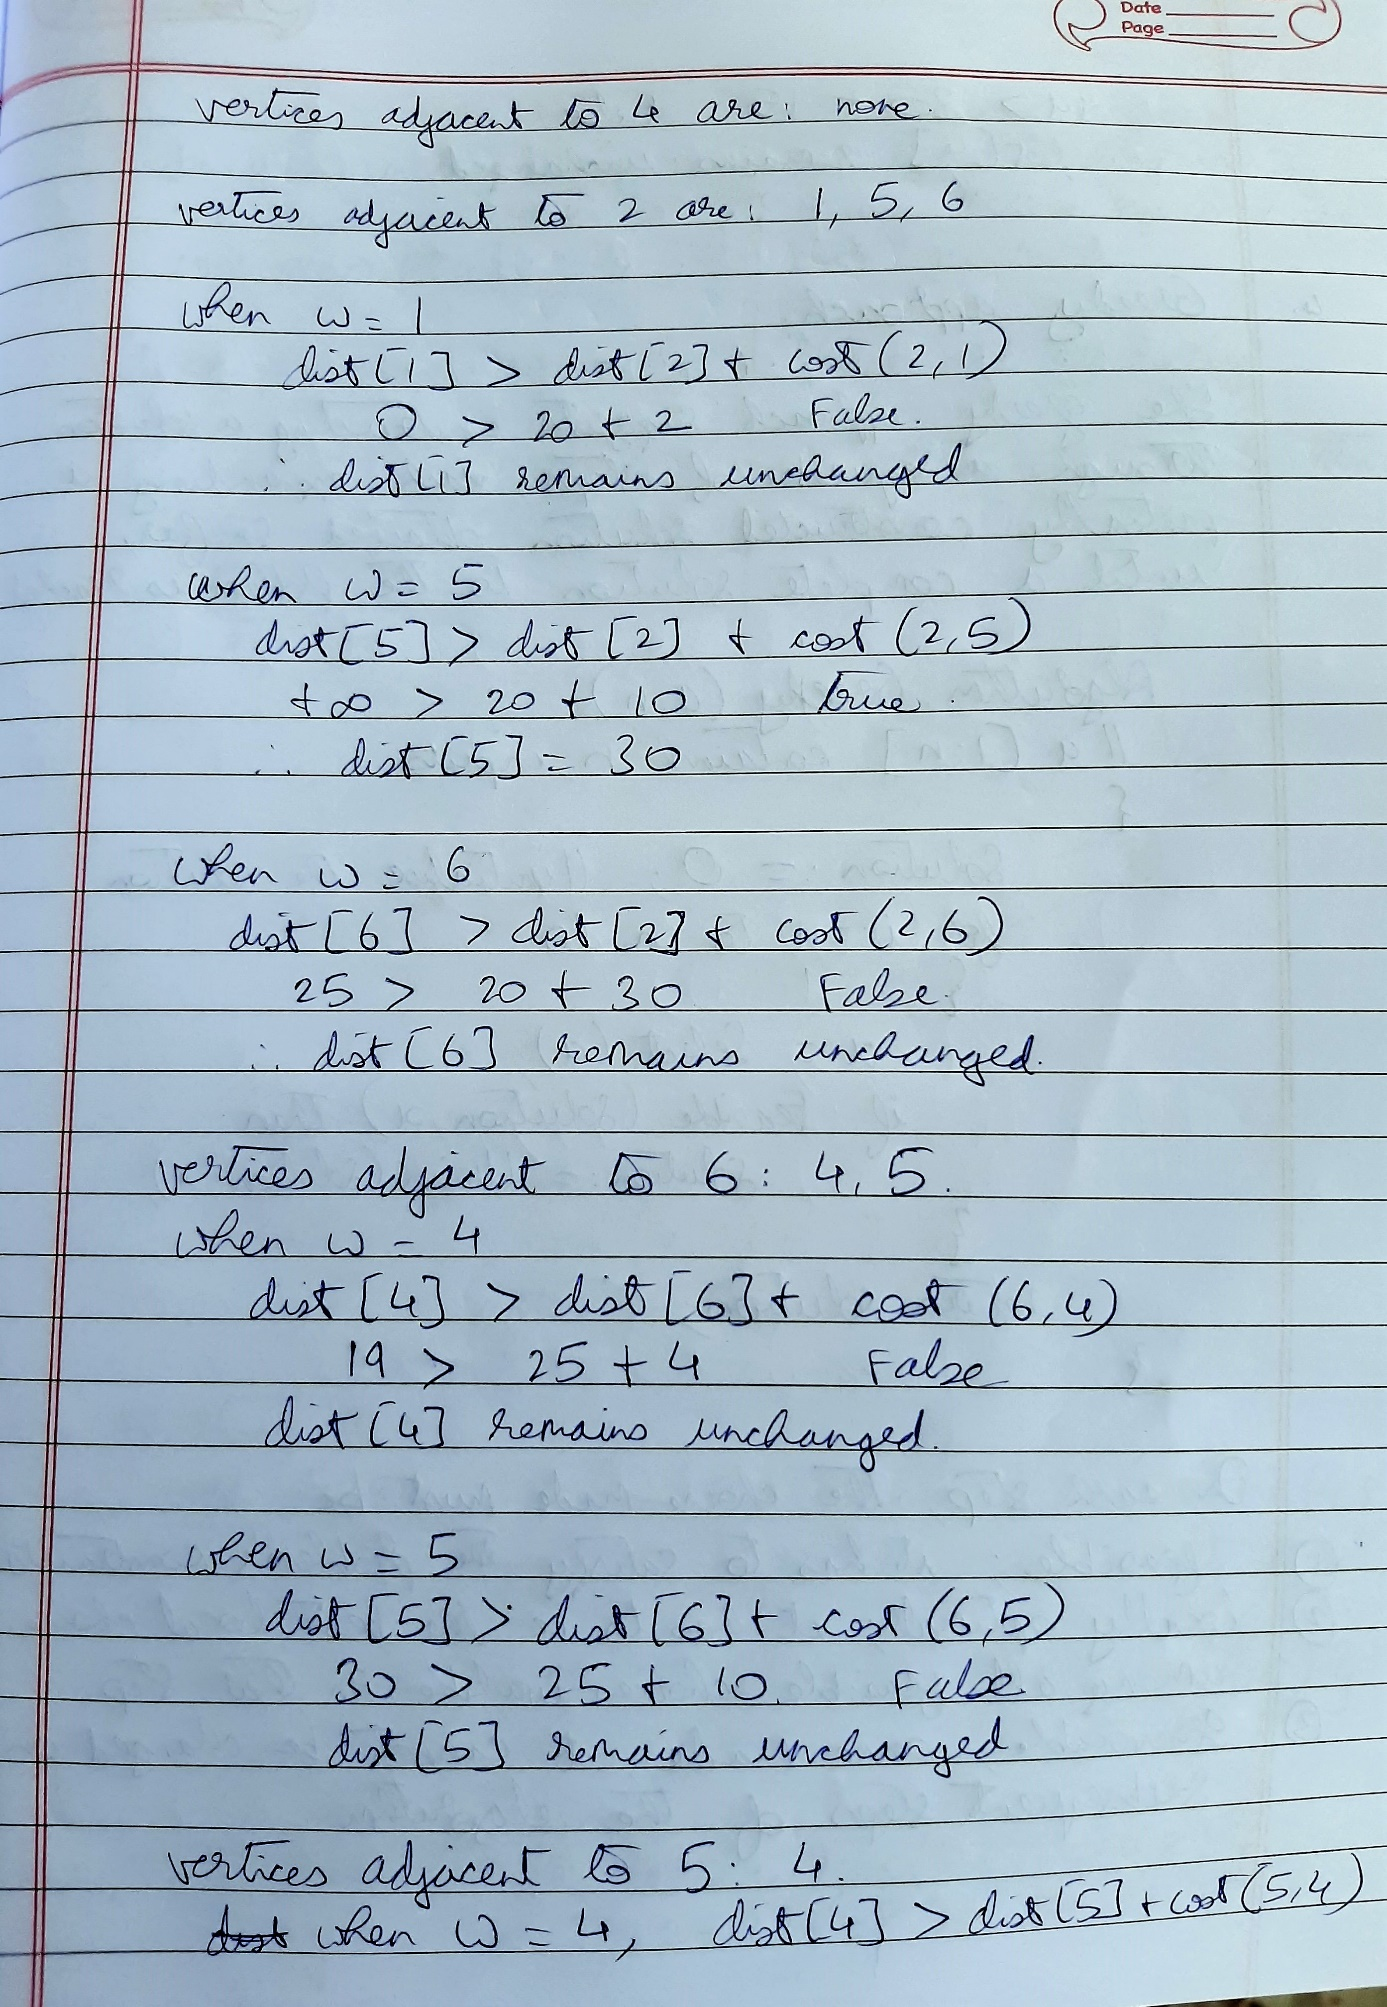 Date
Page
vertices adjacent to 4 are: none.
vertices adjacent to 2 are: 1, 5, 6
when w = 1
dist[1] > dist[2] + cost(2,1)
0 > 20 + 2 False.
∴ dist[1] remains unchanged
when w = 5
dist[5] > dist[2] + cost(2,5)
+∞ > 20 + 10 true.
∴ dist[5] = 30
when w = 6
dist[6] > dist[2] + cost(2,6)
25 > 20 + 30 False.
∴ dist[6] remains unchanged.
vertices adjacent to 6: 4, 5.
when w = 4
dist[4] > dist[6] + cost(6,4)
19 > 25 + 4 False
dist[4] remains unchanged.
when w = 5
dist[5] > dist[6] + cost(6,5)
30 > 25 + 10. False
dist[5] remains unchanged
vertices adjacent to 5: 4.
when w = 4, dist[4] > dist[5] + cost(5,4)